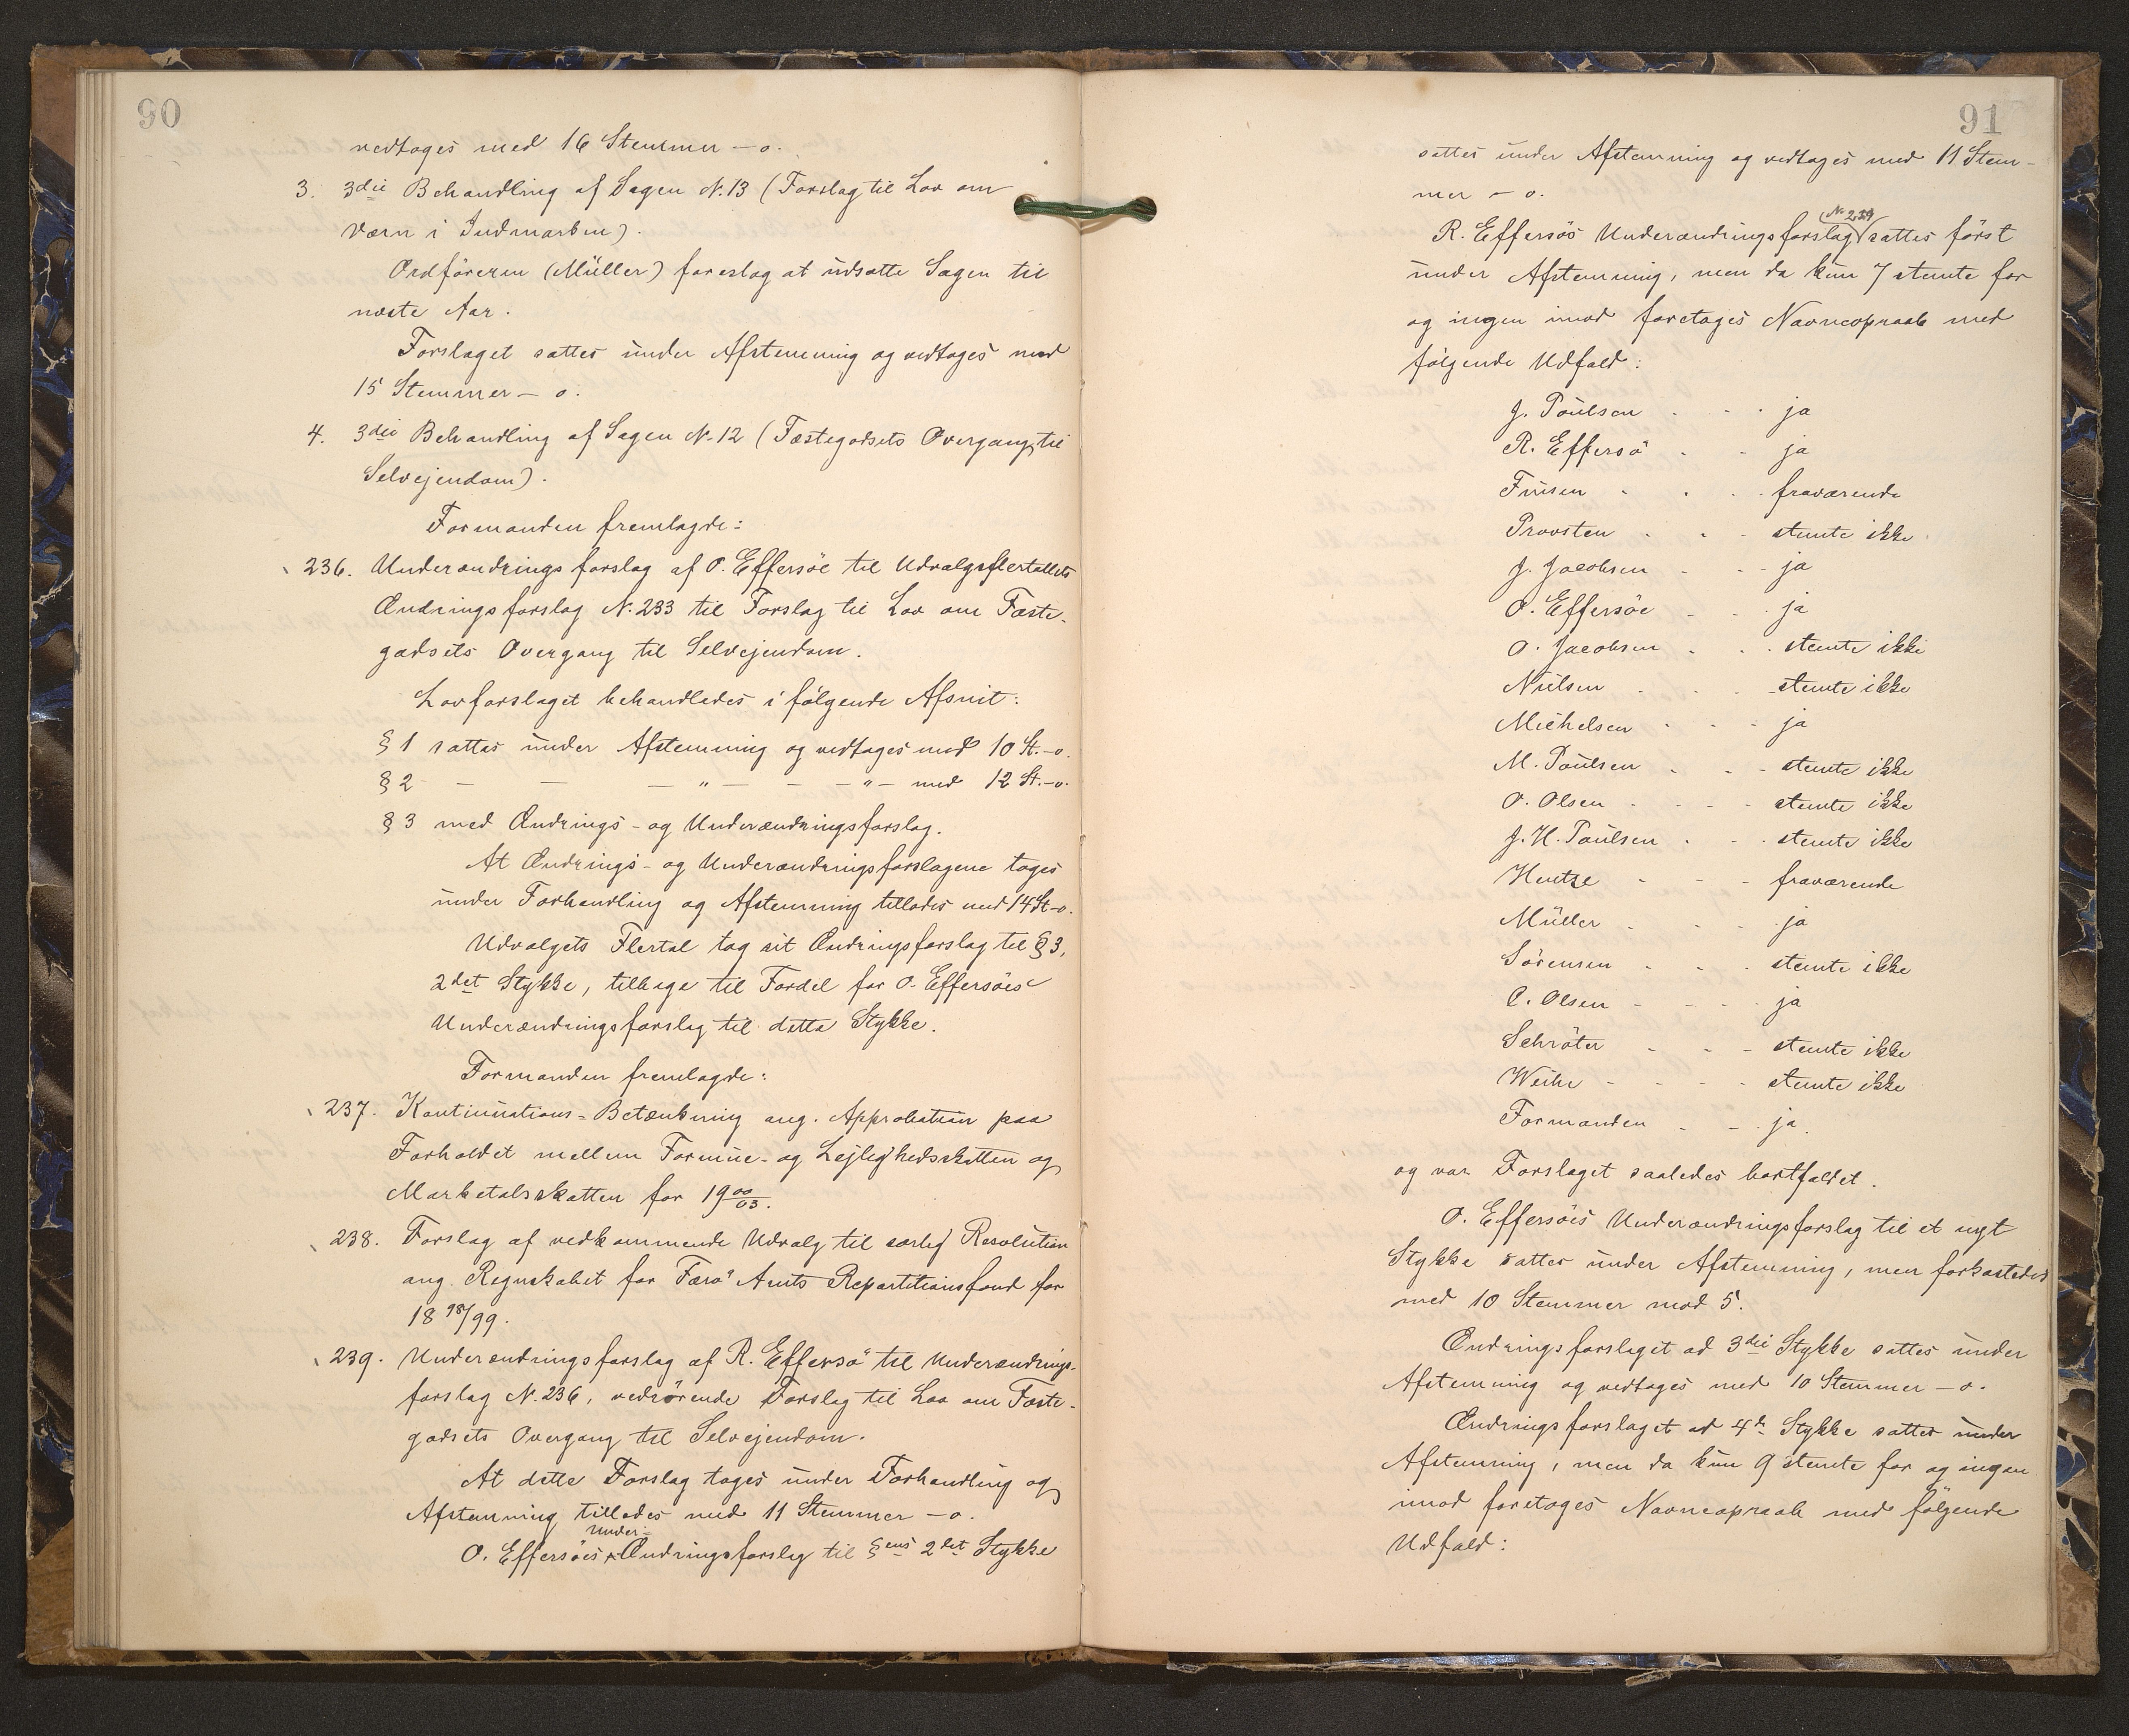 90
vedtoges med 16 Stemmer – o.
3. 3die Behandling af Sagen N. 13 (Forslag til Lov om
Værn i Indmarken).
Ordföreren (Müller) foreslog at udsætte Sagen til
næste Aar.
Forslaget sattes under Afstemning og vedtoges med
15 Stemmer – o.
4. 3die Behandling af Sagen N. 12 (Fæstegodsets Overgang til
Selvejendom).
Formanden fremlagde:
236. Underændringsforslag af O. Effersöe til Udvalgsflertallets
Ændringsforslag N. 233 til Forslag til Lov om Fæste-
godsets Overgang til Selvejendom.
Lovforslaget behandledes i fölgende Afsnit:
§ 1 sattes under Afstemning og vedtoges med 10 St. – o.
§ 2 – – – " – – – " – med 12 St. – o.
§ 3 med Ændrings- og Underændringsforslag.
At Ændrings- og Underændringsforslagene toges
under Forhandling og Afstemning tillodes med 14 St – o.
Udvalgets Flertal tog sit Ændringsforslag til § 3,
2det Stykke, tilbage til Fordel for O. Effersöes
Underændringsforslag til dette Stykke.
Formanden fremlagde:
237. Kontinuations-Betænkning ang. Approbation paa
Forholdet mellem Formue- og Lejlighedsskatten og
Marketalsskatten for 1900/03.
238. Forslag af vedkommende Udvalg til særlig Resolution
ang. Regnskabet for Færö Amts Repartitionsfond for
1898/99.
239. Underændringsforslag af R. Effersö til Underændrings-
forslag N. 236, vedrörende Forslag til Lov om Fæste-
godsets Overgang til Selvejendom.
At dette Forslag toges under Forhandling og
Afstemning tillodes med 11 Stemmer – o.
Under-
O. Effersöes Ændringsforslag til §ens 2det Stykke
91
sattes under Afstemning og vedtoges med 11 Stem-
mer – o.
(N. 239)
R. Effersös Underændringsforslag sattes först
under Afstemning, men da kun 7 stemte for
og ingen imod foretoges Navneopraab med
fölgende Udfald:
J. Poulsen . - . ja
R. Effersö . - ja
Finsen . . . fraværende
Provsten . . - stemte ikke
J. Jacobsen - - - ja
O. Effersöe - - . ja
O. Jacobsen . . . stemte ikke
Nielsen . . - stemte ikke
Michelsen . - - ja
M. Poulsen . - - stemte ikke
O. Olsen . - - - stemte ikke
J. H. Poulsen . - . stemte ikke
Hentze - - - fraværende
Müller . - . ja
Sörensen . . . stemte ikke
C. Olsen - - - . ja
Schröter - - - stemte ikke
Weihe - - - - stemte ikke
Formanden - - . ja.
og var Forslaget saaledes bortfaldet.
O. Effersöes Underændringsforslag til et nyt
Stykke sattes under Afstemning, men forkastedes
med 10 Stemmer mod 5.
Ændringsforslaget ad 3die Stykke sattes under
Afstemning og vedtoges med 10 Stemmer – o.
Ændringsforslaget ad 4de Stykke sattes under
Afstemning, men da kun 9 stemte for og ingen
imod foretoges Navneopraab med fölgende
Udfald: